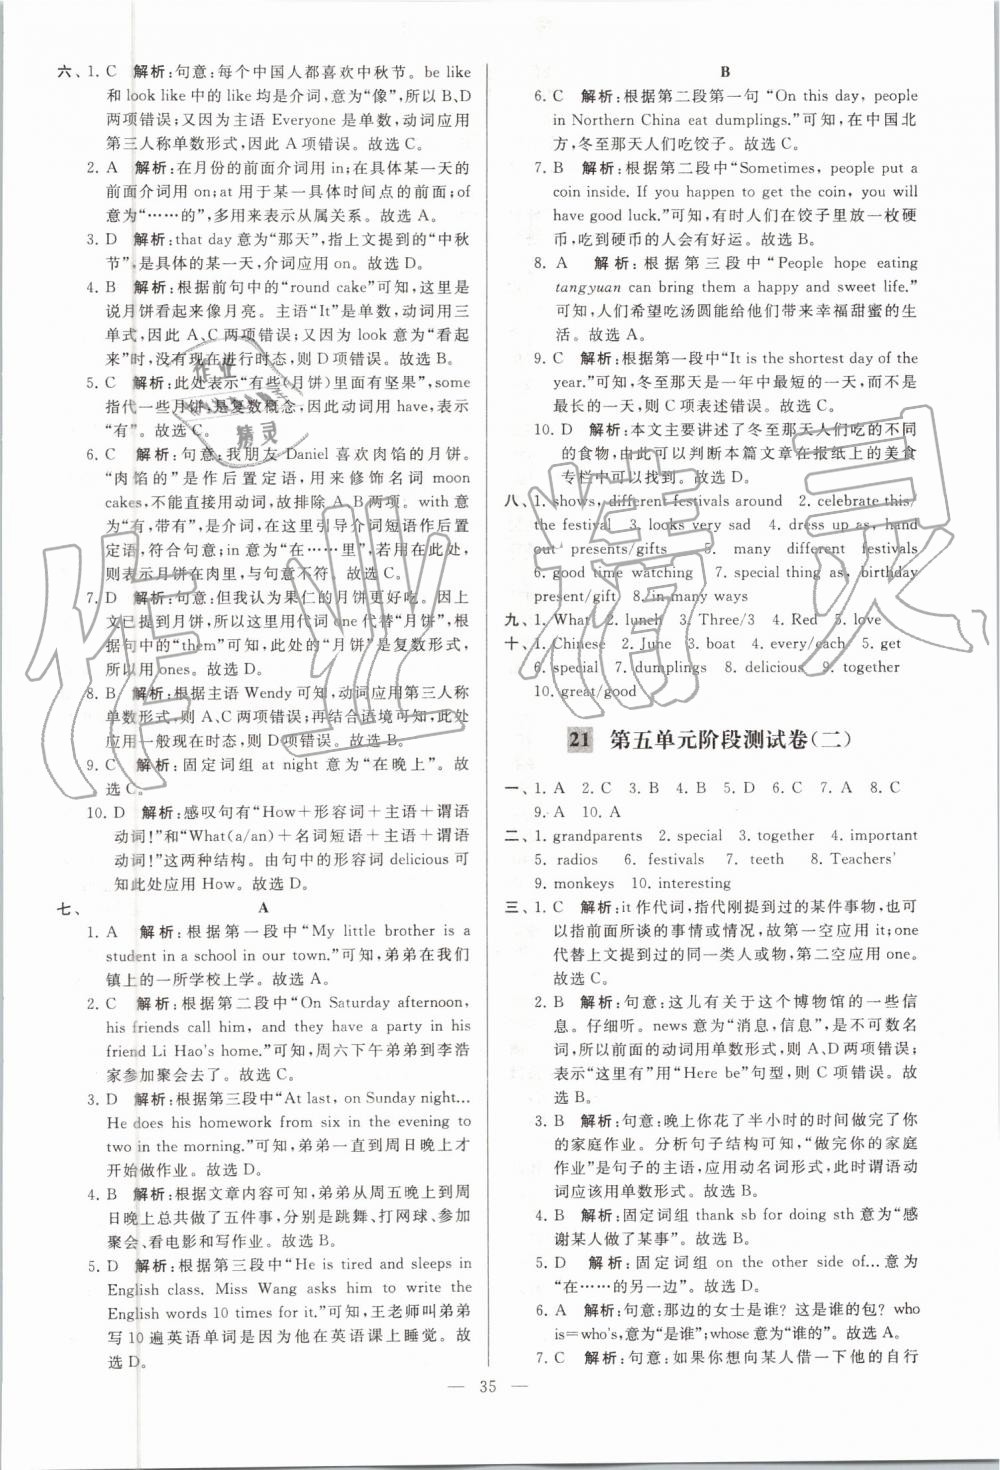 六、1. C 解析:句意:每个中国人都喜欢中秋节。be like
和 look like 中的 like 均是介词,意为“像”,所以 B、D
两项错误;又因为主语 Everyone 是单数,动词应用
第三人称单数形式,因此 A 项错误。故选 C。
2. A 解析:在月份的前面介词用 in;在具体某一天的
前面介词用 on;at 用于某一具体时间点的前面;of
意为“……的”,多用来表示从属关系。故选 A。
3. D 解析:that day 意为“那天”,指上文提到的“中秋
节”,是具体的某一天,介词应用 on。故选 D。
4. B 解析:根据前句中的“round cake”可知,这里是
说月饼看起来像月亮。主语“It”是单数,动词用三
单式,因此 A、C 两项错误;又因为 look 意为“看起
来”时,没有现在进行时态,则 D 项错误。故选 B。
5. C 解析:此处表示“有些(月饼)里面有坚果”,some
指代一些月饼,是复数概念,因此动词用 have,表示
“有”。故选 C。
6. C 解析:句意:我朋友 Daniel 喜欢肉馅的月饼。
“肉馅的”是作后置定语,用来修饰名词 moon
cakes,不能直接用动词,故排除 A、B 两项。with 意
为“有,带有”,是介词,在这里引导介词短语作后置
定语,符合句意;in 意为“在……里”,若用在此处,
则表示月饼在肉里,与句意不符。故选 C。
7. D 解析:句意:但我认为果仁的月饼更好吃。上
文已提到月饼,所以这里用代词 one 代替“月饼”,根
据句中的“them”可知,此处的“月饼”是复数形式,
所以用 ones。故选 D。
8. B 解析:根据主语 Wendy 可知,动词应用第三人称
单数形式,A、C 两项错误;再结合语境可知,此处
应用一般现在时态,则 D 项错误。故选 B。
9. C 解析:固定词组 at night 意为“在晚上”。故
选 C。
10. D 解析:感叹句有“How+形容词+主语+谓语
动词!”和“What(a/an)+名词短语+主语+谓语
动词!”这两种结构。由句中的形容词 delicious 可
知此处应用 How。故选 D。
七、 A
1. A 解析:根据第一段中“My little brother is a
student in a school in our town.”可知,弟弟在我们
镇上的一所学校上学。故选 A。
2. C 解析:根据第二段中“On Saturday afternoon,
his friends call him, and they have a party in his
friend Li Hao's home.”可知,周六下午弟弟到李浩
家参加聚会去了。故选 C。
3. D 解析:根据第三段中“At last, on Sunday night...
He does his homework from six in the evening to
two in the morning.”可知,弟弟一直到周日晚上才
开始做作业。故选 D。
4. B 解析:根据文章内容可知,弟弟从周五晚上到周
日晚上总共做了五件事,分别是跳舞、打网球、参加
聚会、看电影和写作业。故选 B。
5. D 解析:根据第三段中“He is tired and sleeps in
English class. Miss Wang asks him to write the
English words 10 times for it.”可知,王老师叫弟弟
写 10 遍英语单词是因为他在英语课上睡觉。故
选 D。
B
6. C 解析:根据第二段第一句“On this day, people
in Northern China eat dumplings.”可知,在中国北
方,冬至那天人们吃饺子。故选 C。
7. B 解析:根据第二段中“Sometimes, people put a
coin inside. If you happen to get the coin, you will
have good luck.”可知,有时人们在饺子里放一枚硬
币,吃到硬币的人会有好运。故选 B。
8. A 解析:根据第三段中“People hope eating
tangyuan can bring them a happy and sweet life.”
可知,人们希望吃汤圆能给他们带来幸福甜蜜的生
活。故选 A。
9. C 解析:根据第一段中“It is the shortest day of the
year.”可知,冬至那天是一年中最短的一天,而不是
最长的一天,则 C 项表述错误。故选 C。
10. D 解析:本文主要讲述了冬至那天人们吃的不同
的食物,由此可以判断本篇文章在报纸上的美食
专栏中可以找到。故选 D。
八、1. shows, different festivals around 2. celebrate this/
the festival 3. looks very sad 4. dress up as, hand
out presents/gifts 5. many different festivals
6. good time watching 7. special thing as, birthday
present/gift 8. in many ways
九、1. What 2. lunch 3. Three/3 4. Red 5. love
十、1. Chinese 2. June 3. boat 4. every/each 5. get
6. special 7. dumplings 8. delicious 9. together
10. great/good
21 第五单元阶段测试卷(二)
一、1. A 2. C 3. B 4. A 5. D 6. C 7. A 8. C
9. A 10. A
二、1. grandparents 2. special 3. together 4. important
5. radios 6. festivals 7. teeth 8. Teachers'
9. monkeys 10. interesting
三、1. C 解析:it 作代词,指代刚提到过的某件事物,也可
以指前面所谈的事情或情况,故第一空应用 it;one
代替上文提到过的同一类人或物,第二空应用 one。
故选 C。
2. B 解析:句意:这儿有关于这个博物馆的一些信
息。仔细听。news 意为“消息,信息”,是不可数名
词,所以前面的动词用单数形式,A、D 两项错误;
表示“这里有”用“Here be”句型,则 C 项错误。故
选 B。
3. B 解析:句意:晚上你花了半小时的时间做完了你
的家庭作业。分析句子结构可知,“做完你的家庭
作业”是句子的主语,应用动名词形式,此时谓语动
词应该用单数形式。故选 B。
4. B 解析:固定词组 thank sb for doing sth 意为“感
谢某人做了某事”。故选 B。
5. D 解析:固定词组 on the other side of... 意为
“在……的另一边”。故选 D。
6. A 解析:句意:那边的女士是谁?这是谁的包?who
is=who's,意为“是谁”;whose 意为“谁的”。故选 A。
7. C 解析:句意:如果你想向某人借一下他的自行
— 35 —
作业精灵
作业精灵